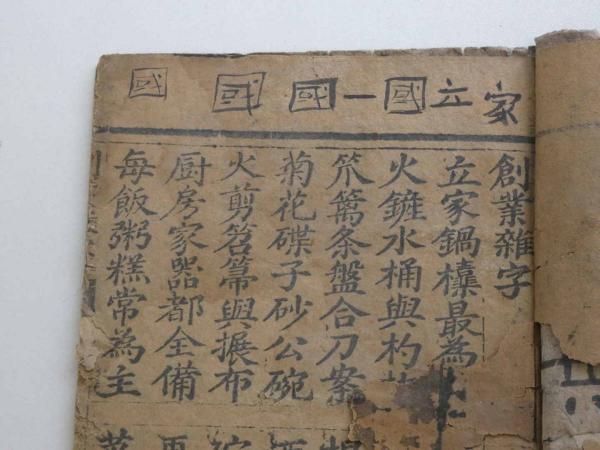 家立國一國國國
創業雜字
立家鍋欙最為
火鏟水桶與杓
笊篱条盤合刀案
菊花碟子砂公碗
火剪笤箒與搌布
厨房家器都全備
每飯粥糕常為主